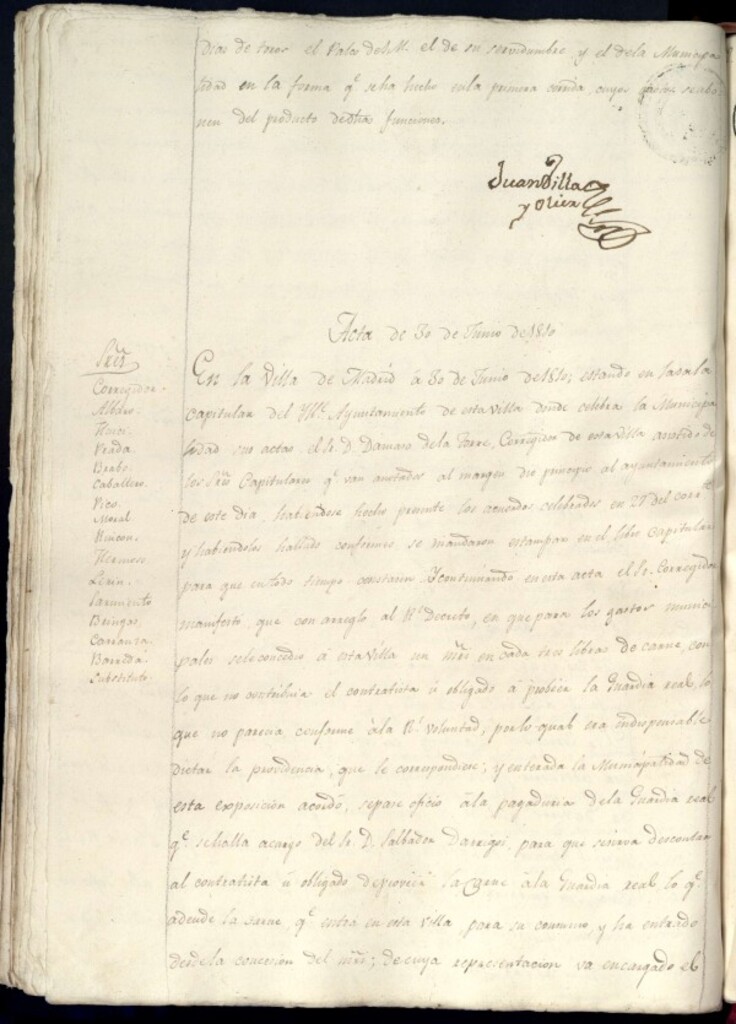 Dias de toros el Palco de S.M. el de su servidumbre y el dela Municipa
lidad en la forma qᵉ seha hecho enla primera corrida, cuyos gastos seabo
nen del producto dedhas funciones.
Juan Villa
y Olier
Acta de 30 de Junio de 1810
Sres
Corregidor.
Aldao.
Prada.
Brabo.
Caballero.
Pico.
Moral.
Rincon.
Hermoso.
Lerin.
Sarmiento
Bringas.
Carranza.
Barreda.
Substituto.
En la Villa de Madrid á 30 de Junio de 1810; estando en lasala
capitular del Yllᵉ. Ayuntamiento de estavilla donde celebra la Municipa
lidad sus actas el Sr. D. Damaso dela Torre, Corregidor de estavilla asistido de
los Sres Capitulares qᵉ van anotados al margen dio principio al ayuntamiento
de este dia, habiendose hecho presente los acuerdos celebrados en 27 del corrᵗᵉ
y habiendolos hallado conformes, se mandaron estampar en el libro Capitular
para que entodo tiempo constaren. Y continuando en esta acta el Sr. Corregidor
manifestó, que con arreglo al Rl Decreto, en que para los gastos munici
pales sele concedio á esta Villa un mrs en cada tres libras de carne, con
lo que no contribuia el contratista ú obligado á probeer la Guardia real, lo
que no parecia conforme ála Rl voluntad, por lo qual era indispensable
dictar la providencia, que le correspondiese; y enterada la Municipalidad de
esta exposicion acordó, sepase oficio ála pagaduria dela Guardia real
qᵉ sehalla acargo del Sr. D. Salbador para que sesirva descontar
al contratista ú obligado deproveer la Carne ála Guardia real lo qᵉ
adeude la carne, qᵉ entra en esta villa, para su consumo, y ha entrado
desdela concesion del mrs; decuya representacion va encargado el